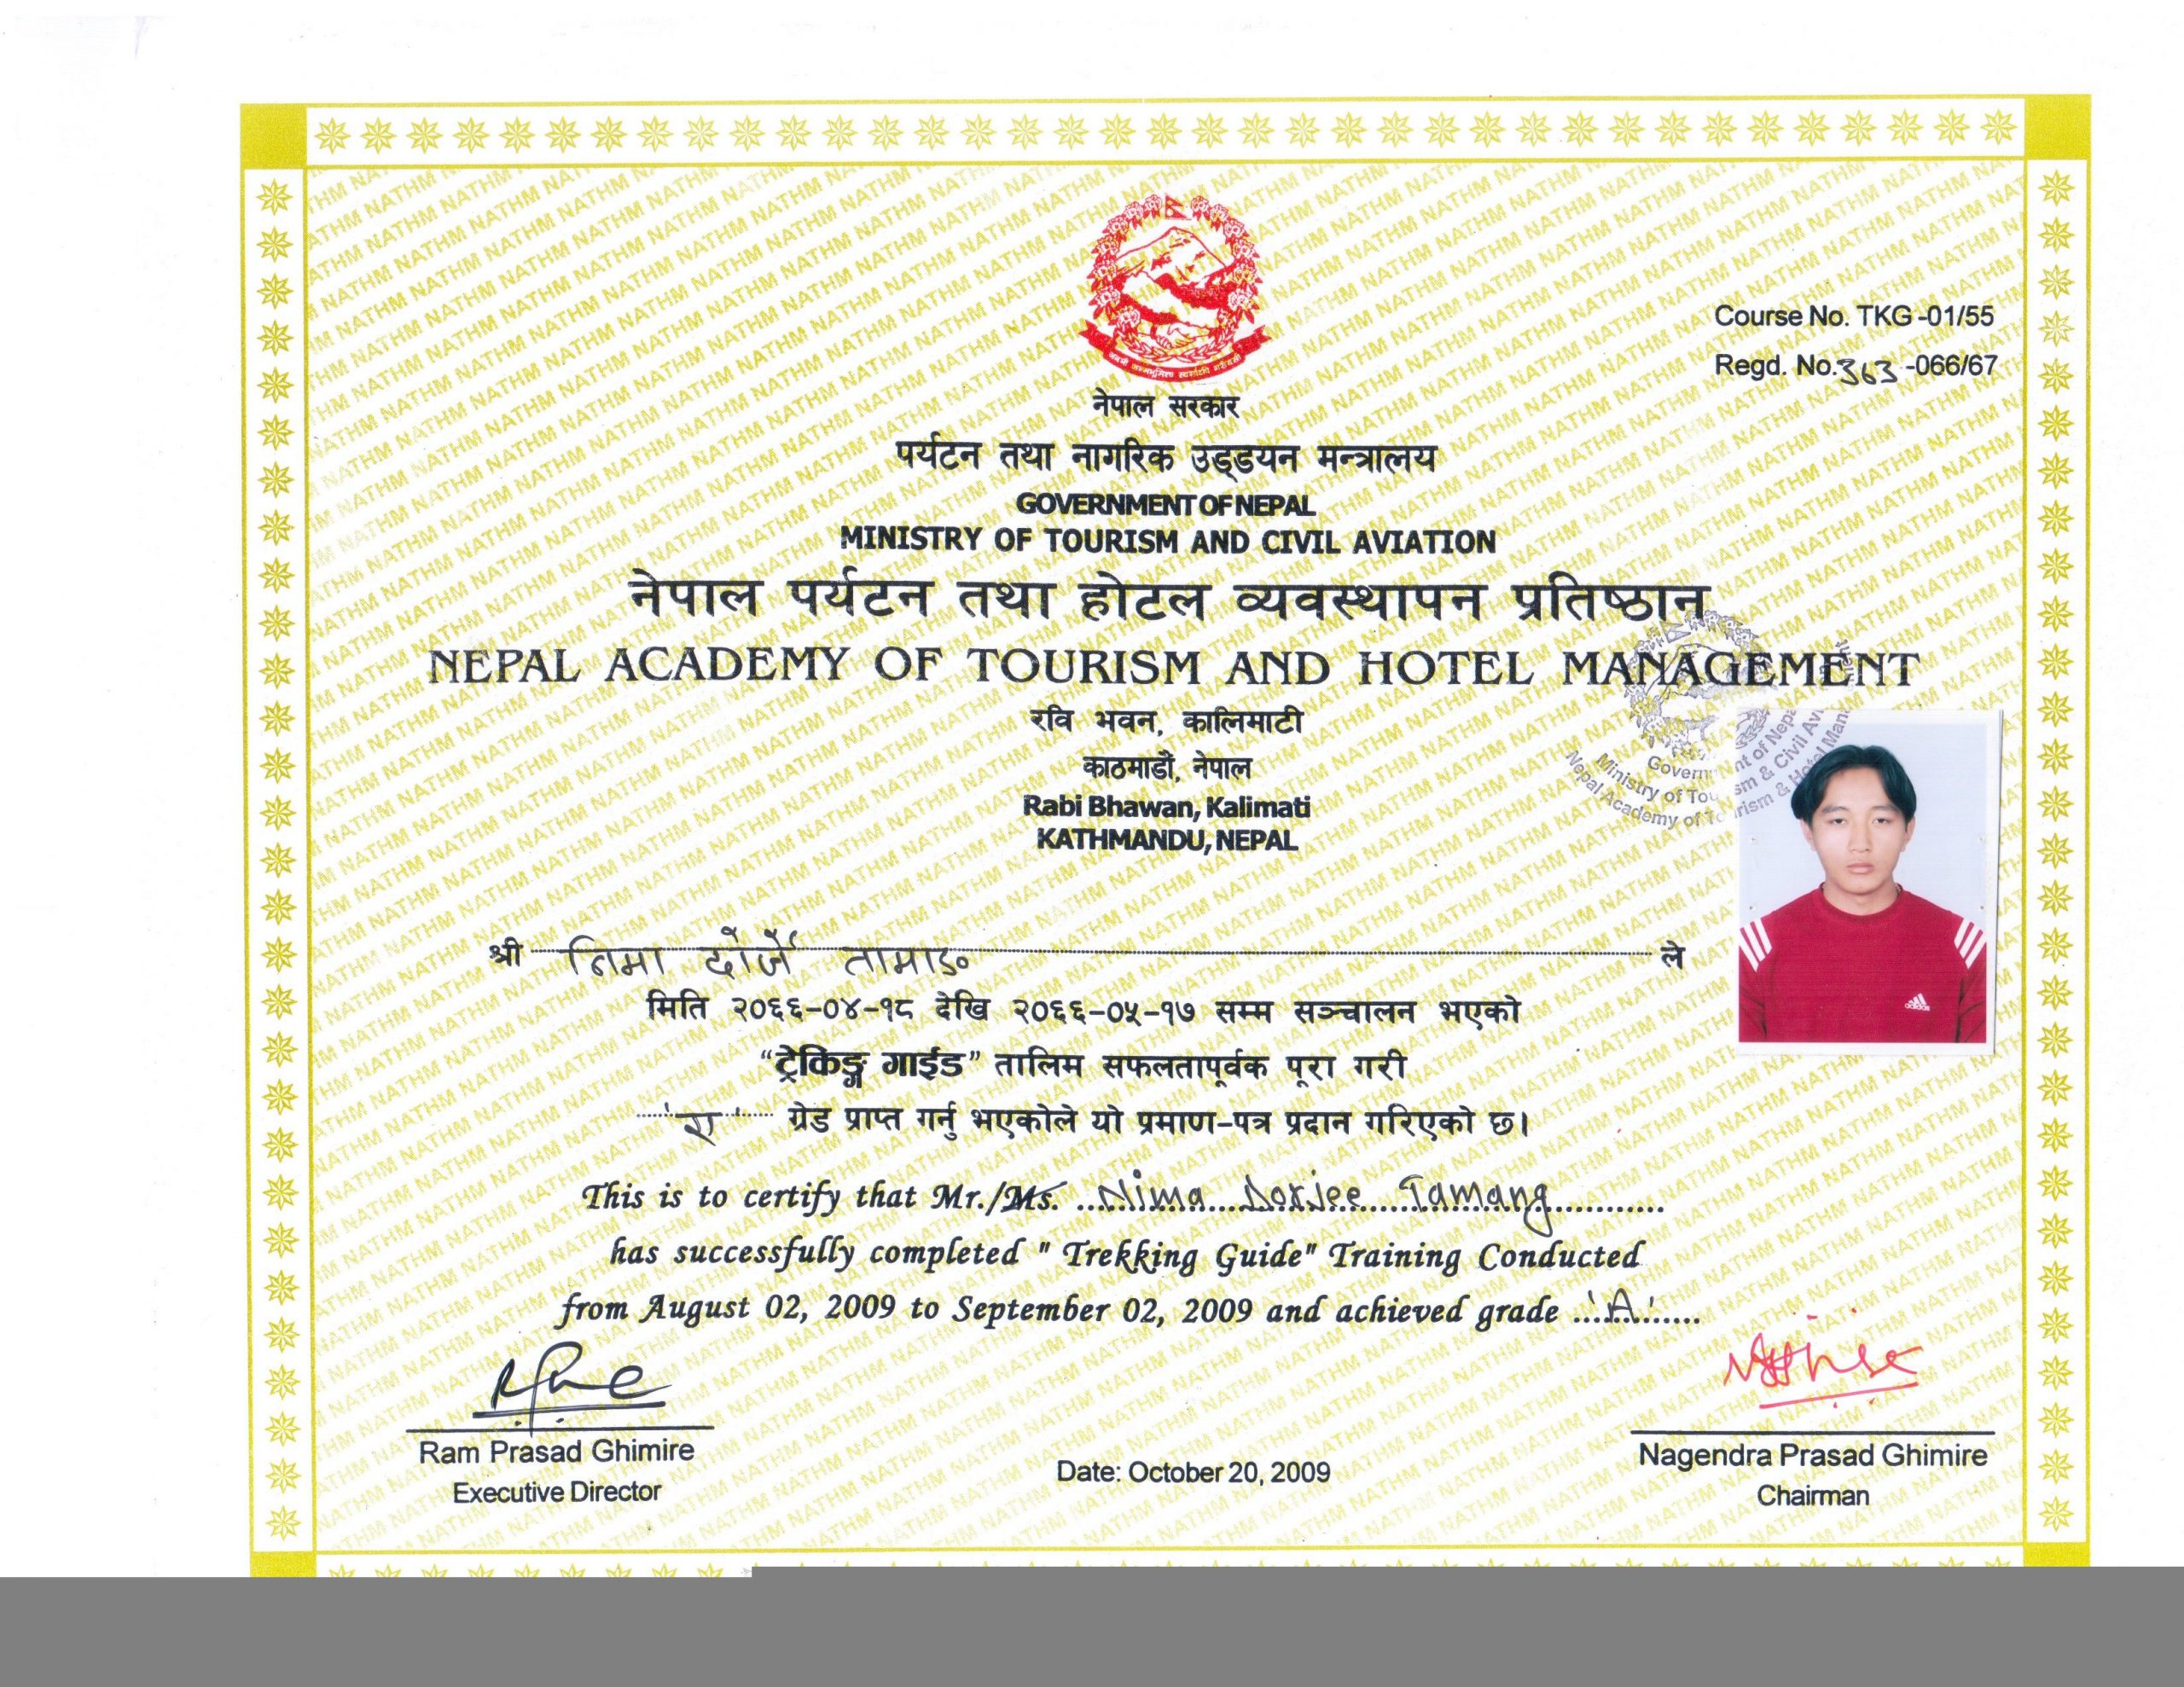 Course No. TKG-01/55
Regd. No. 363-066/67
नेपाल सरकार
पर्यटन तथा नागरिक उड्डयन मन्त्रालय
GOVERNMENT OF NEPAL
MINISTRY OF TOURISM AND CIVIL AVIATION
नेपाल पर्यटन तथा होटल व्यवस्थापन प्रतिष्ठान
NEPAL ACADEMY OF TOURISM AND HOTEL MANAGEMENT
रवि भवन, कालिमाटी
काठमाडौं, नेपाल
Rabi Bhawan, Kalimati
KATHMANDU, NEPAL
श्री निमा दोर्जे तामाङ ले
मिति २०६६-०४-१८ देखि २०६६-०५-१७ सम्म सञ्चालन भएको
"ट्रेकिङ्ग गाईड" तालिम सफलतापूर्वक पूरा गरी
'ए' ग्रेड प्राप्त गर्नु भएकोले यो प्रमाण-पत्र प्रदान गरिएको छ।
This is to certify that Mr./Ms. Nima Dorjee Tamang
has successfully completed " Trekking Guide" Training Conducted
from August 02, 2009 to September 02, 2009 and achieved grade 'A'
Ram Prasad Ghimire
Executive Director
Date: October 20, 2009
Nagendra Prasad Ghimire
Chairman
adidas